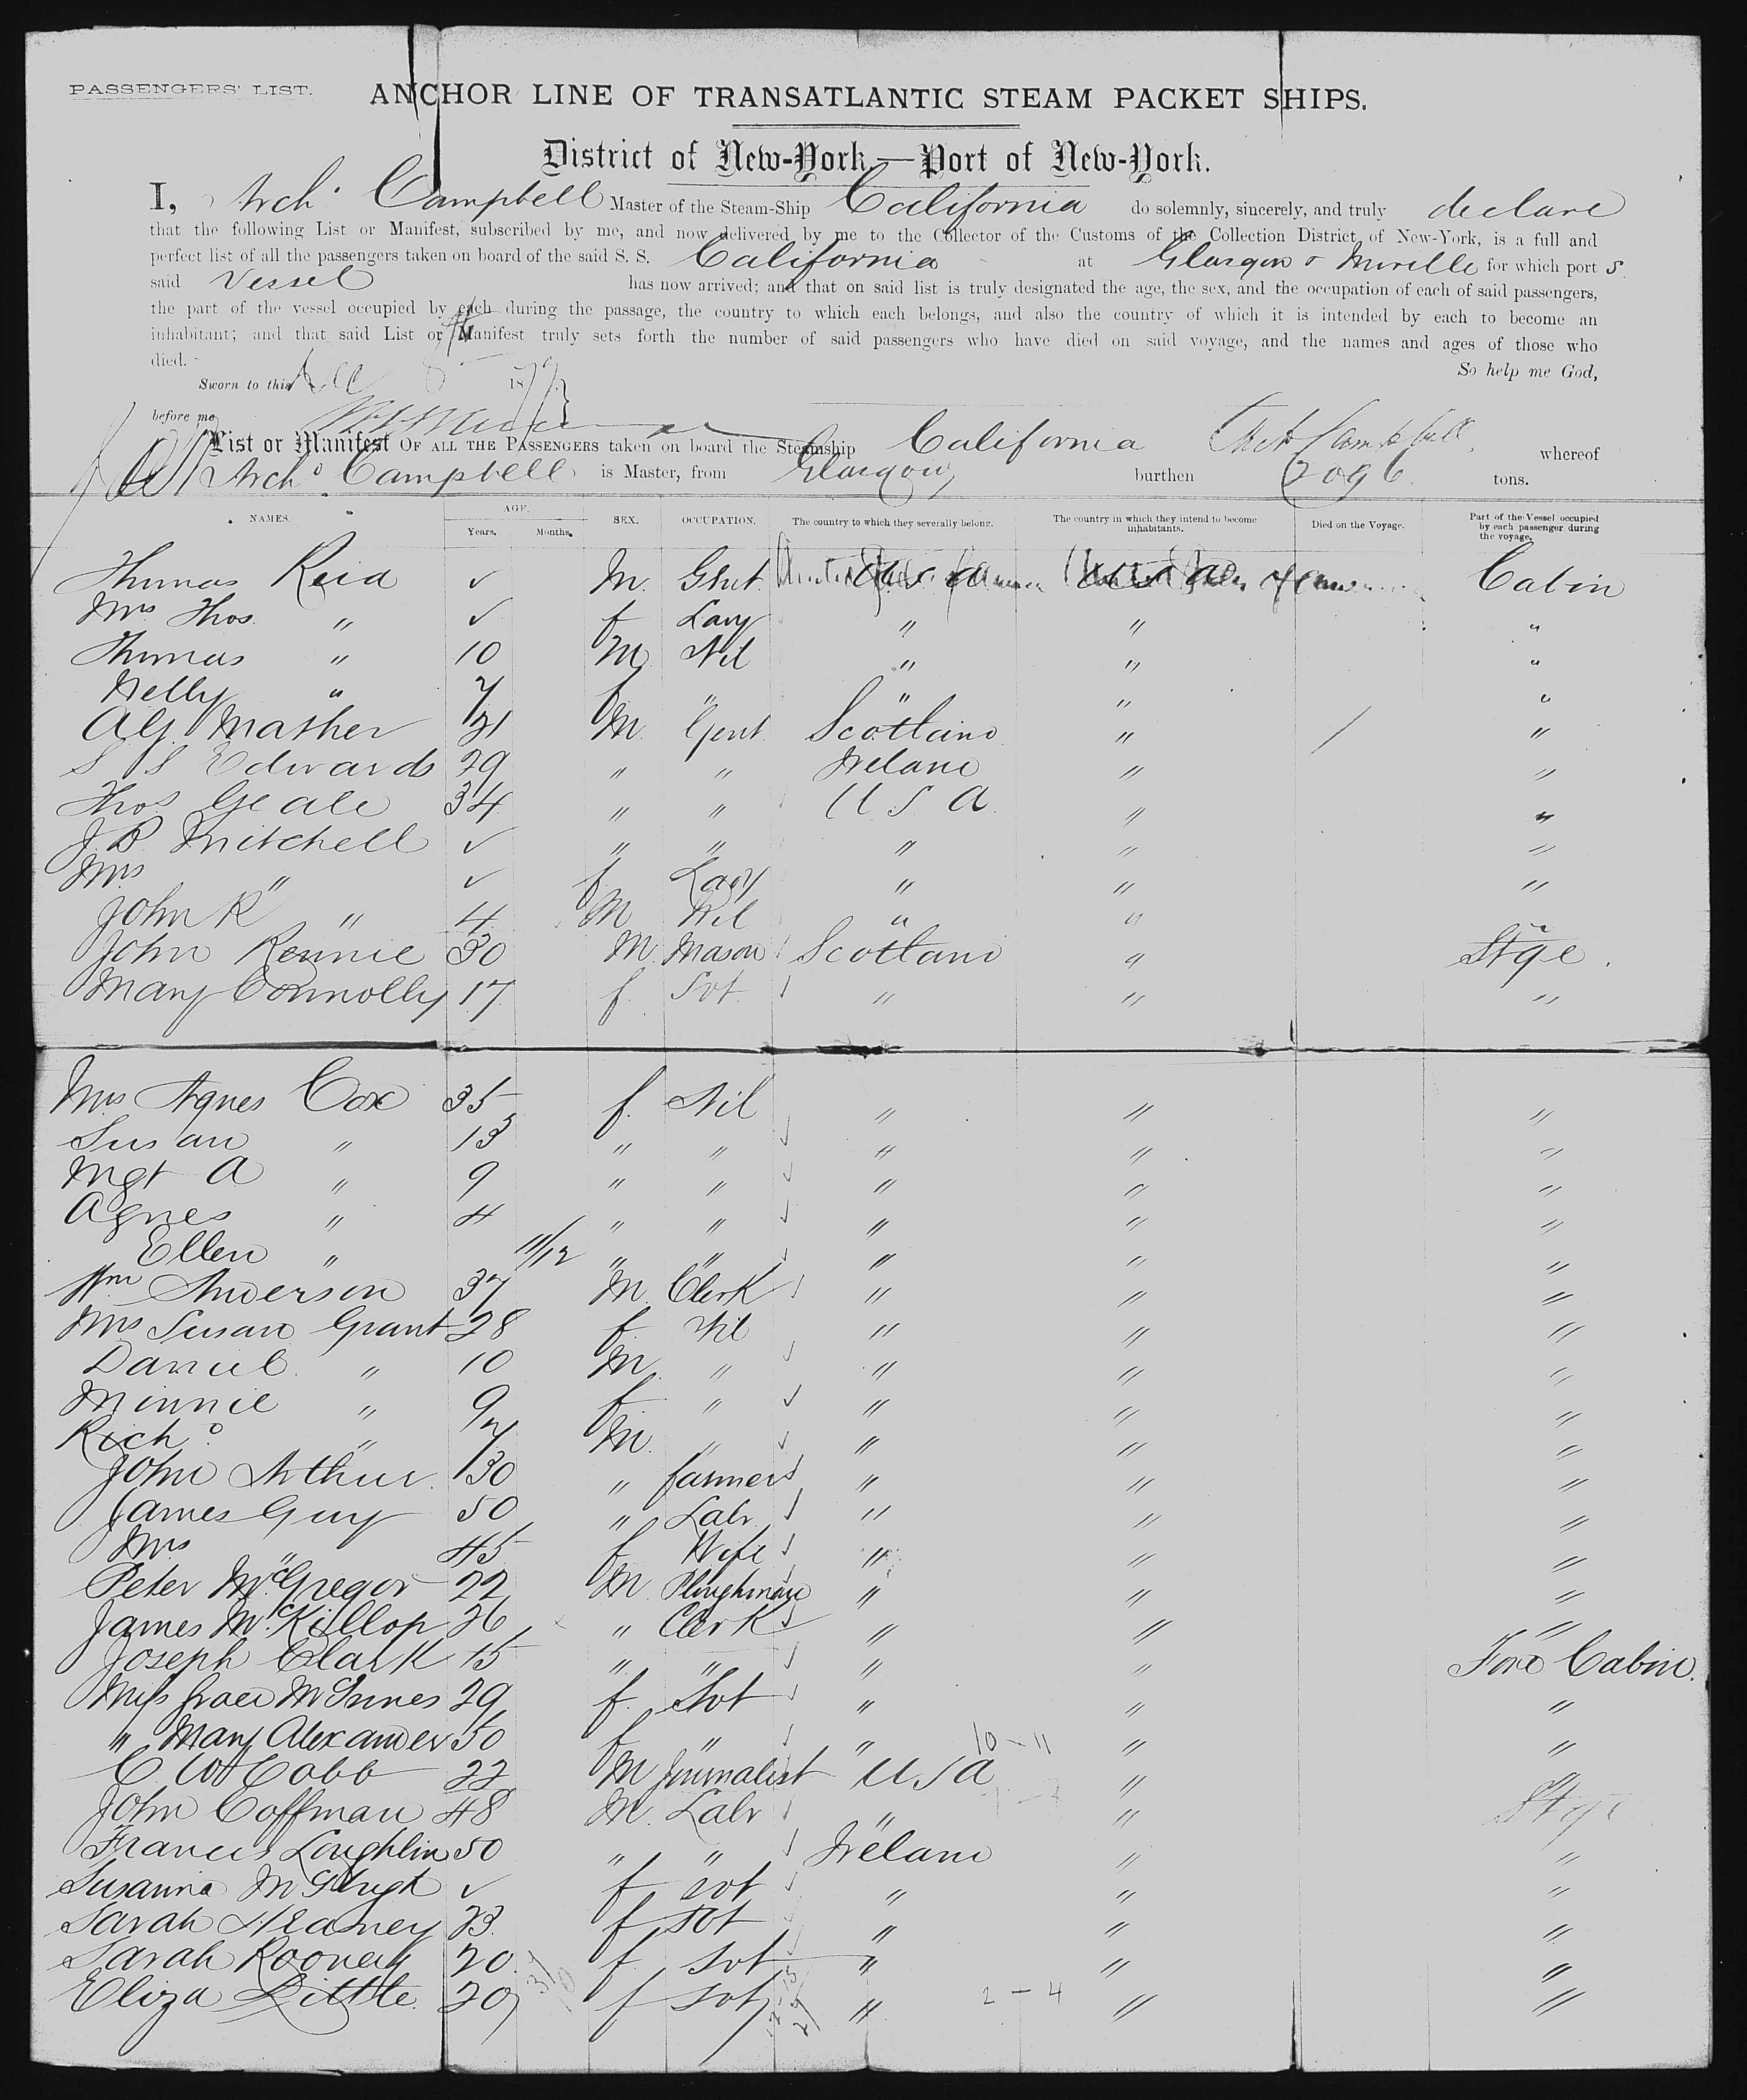 PASSENGERS' LIST.
ANCHOR LINE OF TRANSATLANTIC STEAM PACKET SHIPS.
District of New-York,—Port of New-York.
I, Archd Campbell Master of the Steam-Ship California do solemnly, sincerely, and truly declare
that the following List or Manifest, subscribed by me, and now delivered by me to the Collector of the Customs of the Collection District of New-York, is a full and
perfect list of all the passengers taken on board of the said S. S. California at Glasgow & Moville for which port s
said Vessel has now arrived; and that on said list is truly designated the age, the sex, and the occupation of each of said passengers,
the part of the vessel occupied by each during the passage, the country to which each belongs, and also the country of which it is intended by each to become an
inhabitant; and that said List or Manifest truly sets forth the number of said passengers who have died on said voyage, and the names and ages of those who
died. So help me God,
Sworn to this Dec 187
before me
List or Manifest OF ALL THE PASSENGERS taken on board the Steamship California Archd Campbell whereof
Archd Campbell is Master, from Glasgow burthen 2096 tons.
NAMES. AGE. Years. Months. SEX. OCCUPATION. The country to which they severally belong. The country in which they intend to become inhabitants. Died on the Voyage. Part of the Vessel occupied by each passenger during the voyage.
Thomas Reid ✓ M. Gent U S A U S A Cabin
Mrs Thos " ✓ f Lady " " "
Thomas " 10 M Nil " " "
Nelly " 7 f " " " "
Alf Mather 21 M Gent Scotland " / "
S S Edwards 29 " " Ireland " "
Thos Geale 34 " " U S A " "
J. B. Mitchell ✓ " " " " "
Mrs " ✓ f Lady " " "
John R " 4 M Nil " " "
John Rennie 30 M Mason Scotland " Stge.
Mary Connolly 17 f. Svt " " "
Mrs Agnes Cox 35 f. Nil " " "
Susan " 13 " " " " "
Mgt A " 9 " " " " "
Agnes " 4 " " " " "
Ellen " 11/12 " " " " "
Wm Anderson 37 M. Clerk " " "
Mrs Susan Grant 28 f. Nil " " "
Daniel " 10 M. " " " "
Minnie " 9 f. " " " "
Richd " 7 M. " " " "
John Arthur 30 " farmer " " "
James Guy 50 " Labr " " "
Mrs " 45 f Wife " " "
Peter McGregor 22 M Ploughman " " "
James McKillop 26 " Clerk " " "
Joseph Clark 15 " " " " Fore Cabin.
Miss Grace McInnes 29 f. Svt " " "
" Mary Alexander 50 f " " " "
C W Cobb 22 M Journalist U S A " "
John Coffman 48 M. Labr " " Stge
Francis Loughlin 50 " " Ireland " "
Susanna ✓ f svt " " "
Sarah Heaney 23. f svt " " "
Sarah Rooney 20 f svt " " "
Eliza Little. 20 f svt " 2 - 4 " "